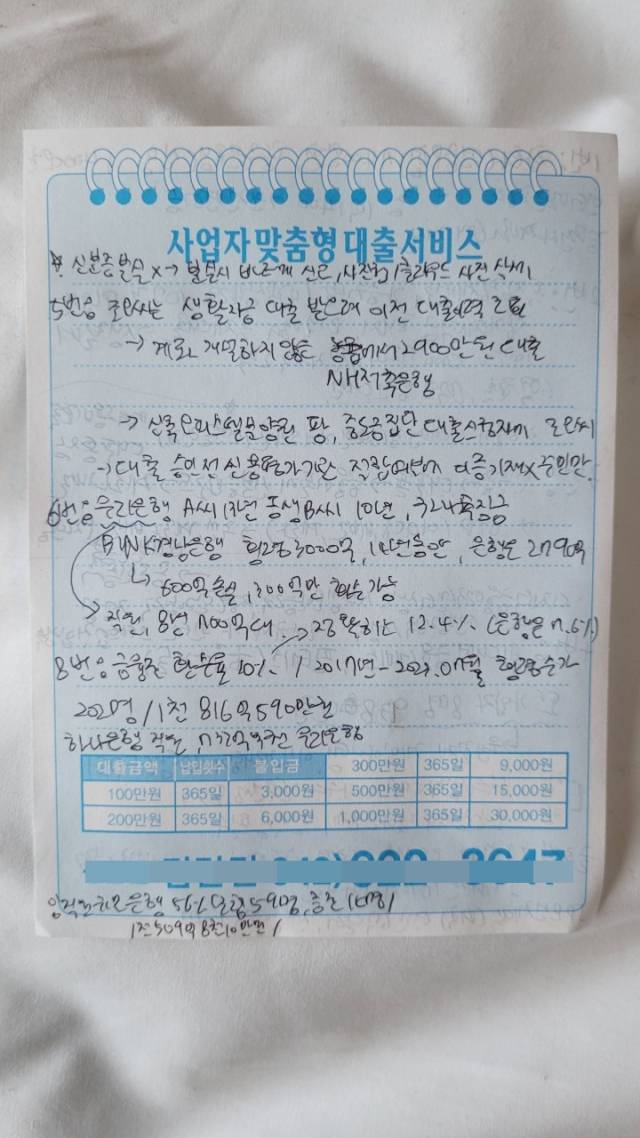 사업자 맞춤형 대출서비스
신분증 분실 x → 분실시 바르게 신고, 사진첩/클라우드 사진 삭제
5번응 조모씨는 생활자금 대출 받으려 이전 대출이력 조회
→ 계좌 개설하지 않은 에서 2900만원 대출
NH저축은행
→ 신축오피스텔 분양권 땅, 중도금집단대출 조모씨
→ 대출 승인전 신용평가기관 직장
6번응 우리은행 A씨 13년 동생B씨 10년, 특징금
BNK경남은행 횡령 3000억, 14년동안, 은행은 2790억
↳ 600억 손실, 300억만 회수가능
→ 직원, 8번 700억대 정확히는 12.4% (은행은 7.6%)
8번응 금융권 환수율 10% / 2017년 - 2023.07월 횡령
202명 / 1천 816억 590만원
하나은행 직원, 우리은행
대출금액 납입횟수 불입금 300만원 365일 9,000원
100만원 365일 3,000원 500만원 365일 15,000원
200만원 365일 6,000원 1,000만원 365일 30,000원
임직원 은행 56% 보험 59명, 증권
1천 509억 8천10만원 /